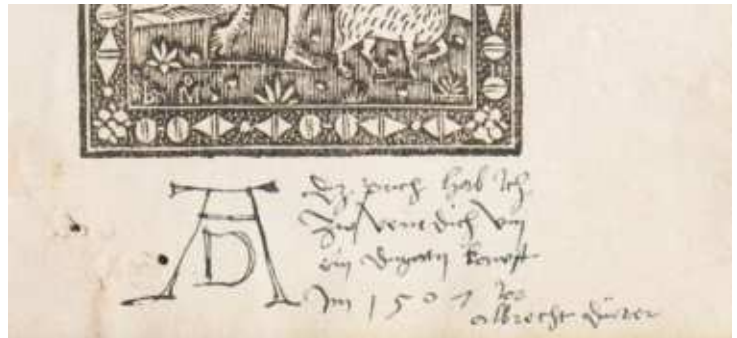 AD
Dz puch hab ich
zw venedich vm
ein Dugatn kawft
Im 1507 jor
albrecht dürer